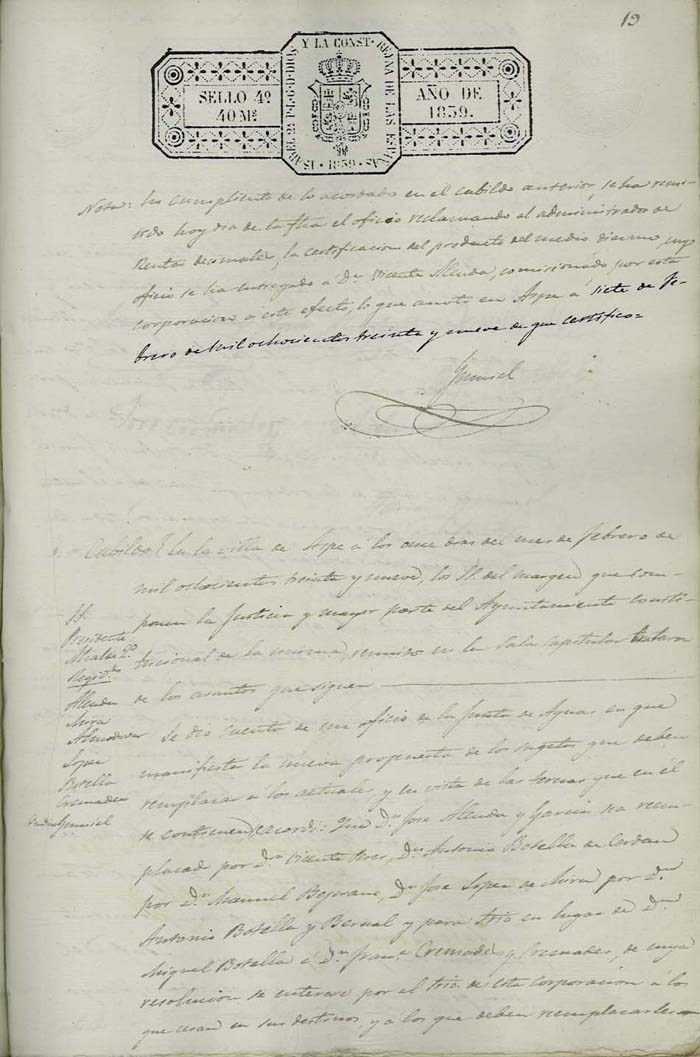 19
SELLO 4º
40 Ms
ISABEL 2ª P.L.G.D.DIOS Y LA CONST. REYNA DE LAS ESPAÑAS
1839
AÑO DE
1839.
Nota: En cumplimto de lo acordado en el cabildo anterior, se ha remi-
tido hoy dia de la fha el oficio reclamando al administrador de
Rentas decimales, la certificacion del producto del medio diezmo, cuyo
oficio se ha entregado á Dn Vicente Alenda, comisionado por esta
corporacion á este efecto, lo que anoto en Aspe á siete de Fe-
brero de mil ochocientos treinta y nueve de que certifico=
Cabildo En la villa de Aspe á los once dias del mes de febrero de
mil ochocientos treinta y nueve, los SS. del margen que com-
ponen la Justicia y mayor parte del Ayuntamiento consti-
tucional de la misma, reunido en la Sala Capitular trataron
de los asuntos que siguen
SS.
Presidente
Alcalde 2º
Regids
Alenda
Mira
Almodovar
Lopez
Botella
Cremades
Se dio cuenta de un oficio de la Junta de Aguas en que
manifiesta la nueva propuesta de los sugetos que deben
remplazar a los actuales, y en vista de las ternas que en él
se contienen, acordó: Que Dn Jose Alenda y Garcia sea reem-
plazado por Dn Vicente, Dn Antonio Botella de Cerdan
por Dn Manuel Bojerano, Dn Jose Lopez de Mira por Dn
Antonio Botella y Bernal y para Srio en lugar de Dn
Miguel Botella á Dn Franco Cremades y Cremades, de cuya
resolucion se enterase por el Srio de esta corporacion á los
que cesan en sus destinos y á los que deben remplazarles